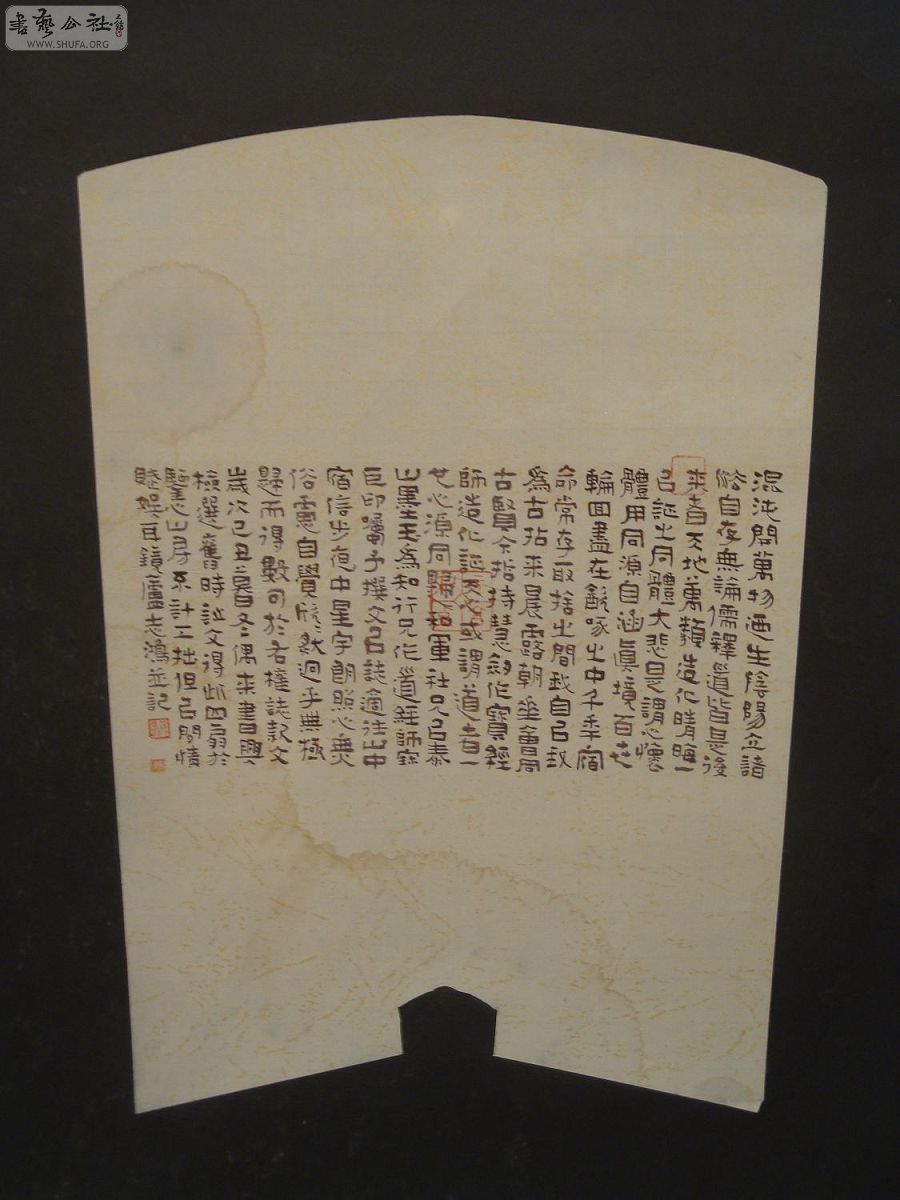 書藝公社
WWW.SHUFA.ORG
混沌開萬物迺生陰陽立諸
俗自存無論儒釋道皆是後
來者天地萬類造化晴晦一
已誕出同體大悲是謂心懷
體用同源自涵真境百世
輪回盡在飲啄之中千乘宿
命常存取捨之間我自己故
為古拈來晨露朝坐
古賢今指持慧劍作寶經
師造化誕天心或謂道者一
世心源同歸和運社兄已泰
山墨玉為知行兄作道經師寶
巨印囑予撰文已誌適往山中
宿信步夜中星宇朗照心無
俗慮自覺欣歎迥乎無極
歸而得數句於右權誌記文
歲次己丑暮冬偶來書興
檢選舊時誌文得此四扇於
山房不計工拙但已閑情
娛耳鏡廬志鴻並記